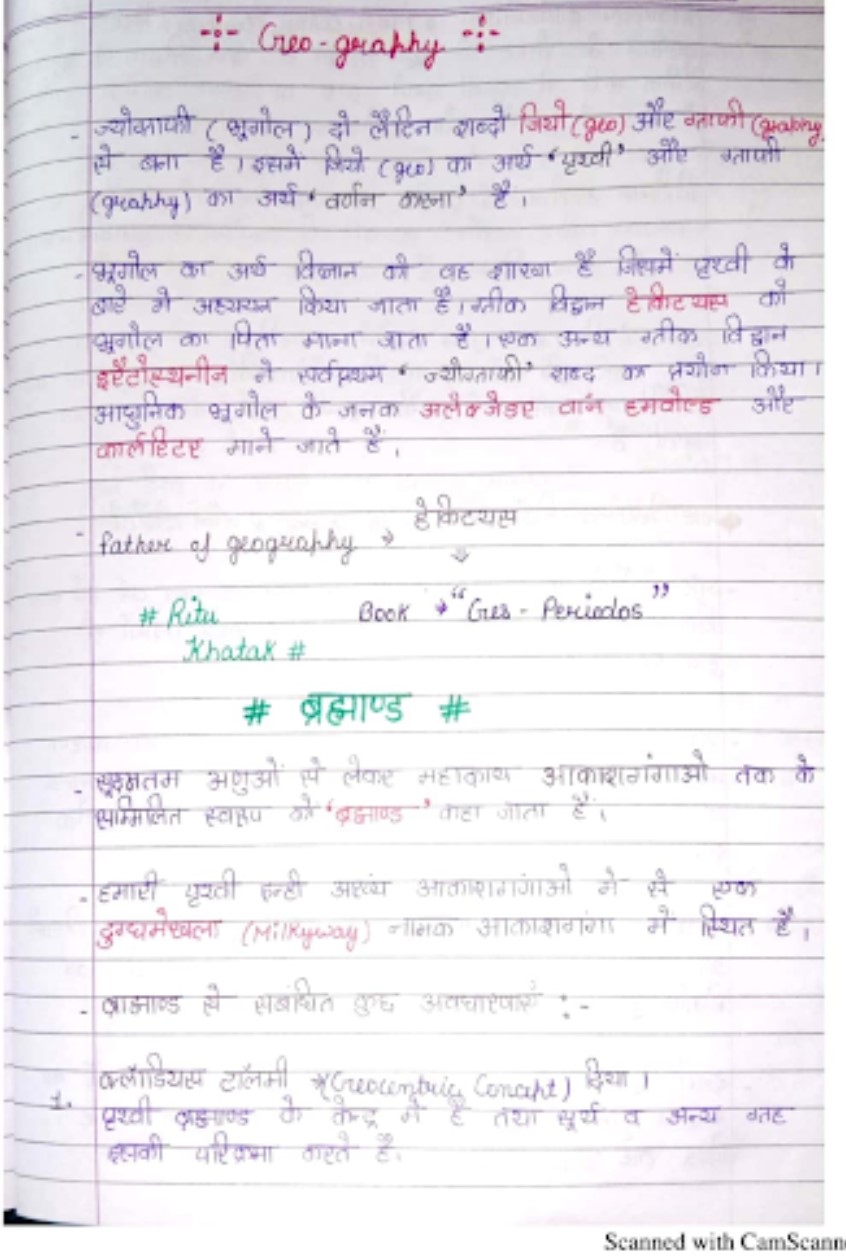 -:- Geo-graphy -:-
- ज्योग्राफी (भूगोल) दो लैटिन शब्दों जियो (geo) और ग्राफी (graphy)
से बना है। इसमें जियो (geo) का अर्थ 'पृथ्वी' और ग्राफी
(graphy) का अर्थ 'वर्णन करना' है।
- भूगोल का अर्थ विज्ञान की वह शाखा है जिसमें पृथ्वी के
बारे में अध्ययन किया जाता है। ग्रीक विद्वान हेकिटयस को
भूगोल का पिता माना जाता है। एक अन्य ग्रीक विद्वान
इरैटोस्थनीन ने सर्वप्रथम 'ज्योग्राफी' शब्द का प्रयोग किया।
आधुनिक भूगोल के जनक अलेक्जेडर वॉन हमवोल्ड और
कार्लरिटर माने जाते हैं।
- Father of geography → हेकिटयस
⇓
# Ritu Book → "Ges - Periodos"
Khatak #
# ब्रह्माण्ड #
- सूक्ष्मतम अणुओं से लेकर महाकाय आकाशगंगाओ तक के
सम्मिलित स्वरूप को 'ब्रह्माण्ड' कहा जाता है।
- हमारी पृथ्वी इन्ही असंख्य आकाशगंगाओ में से एक
दुग्धमेखला (Milkyway) नामक आकाशगंगा में स्थित है।
- ब्राह्माण्ड से संबंधित कुछ अवधारणाएं :-
1. क्लॉडियस टॉलमी (Geocentric Concept) दिया।
पृथ्वी ब्रह्माण्ड के केन्द्र में है तथा सूर्य व अन्य ग्रह
इसकी परिक्रमा करते है।
Scanned with CamScanne